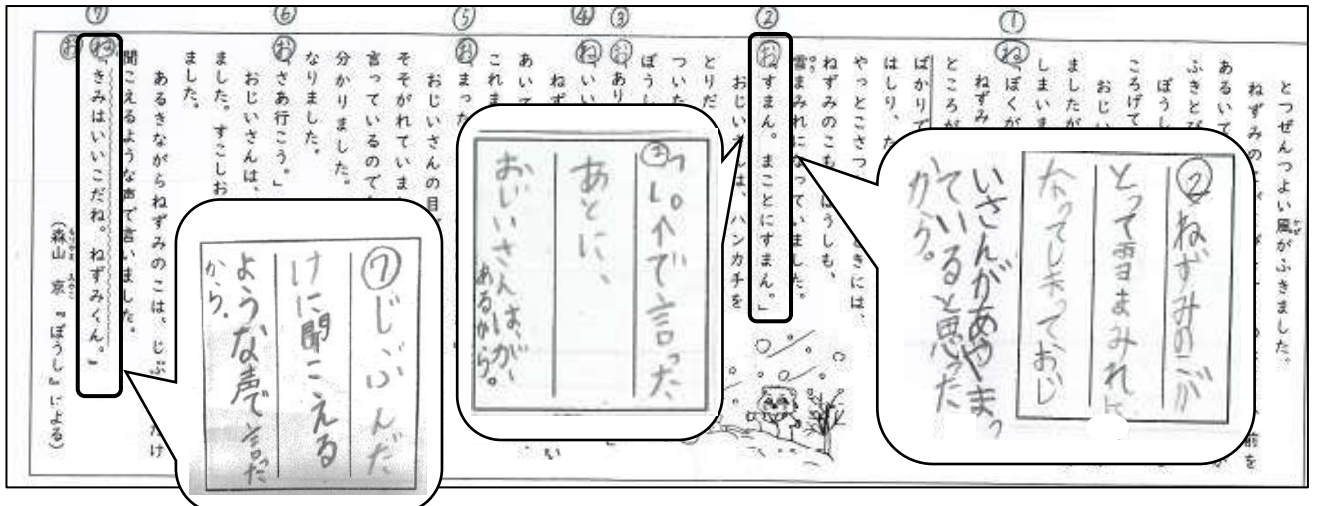 とつぜんつよい風がふきました。
ねずみの
前を
あるいて
ふきとび
ぼうし
ころげて
おじい
ましたが
しまいま
①
ね「ぼくが
ねずみ
ところが
ばかりで
はしり、た
やっとこさつ
ときには、
ねずみのこも、ぼうしも、
雪まみれになっていました。
②
お「すまん。まことにすまん。」
おじいさんは、ハンカチを
とりだ
ついた
ぼうし
③
お「あり
④
ね「いい
ねず
あいて
これま
⑤
お「まった
おじいさんの目
そそがれていま
言っているので
分かりました。
なりました。
⑥
お「さあ行こう。」
おじいさんは、
ました。すこしお
ました。
あるきながらねずみのこは、じぶ
だけ
聞こえるような声で言いました。
⑦
おね「きみはいいこだね。ねずみくん。」
（森山 京『ぼうし』による）
②ねずみのこが
とって雪まみれに
なってしまっておじ
いさんがあやまっ
ていると思った
から。
で言った
あとに、
おじいさんは、が
あるから。
⑦じぶんだ
けに聞こえる
ような声で言った
から。